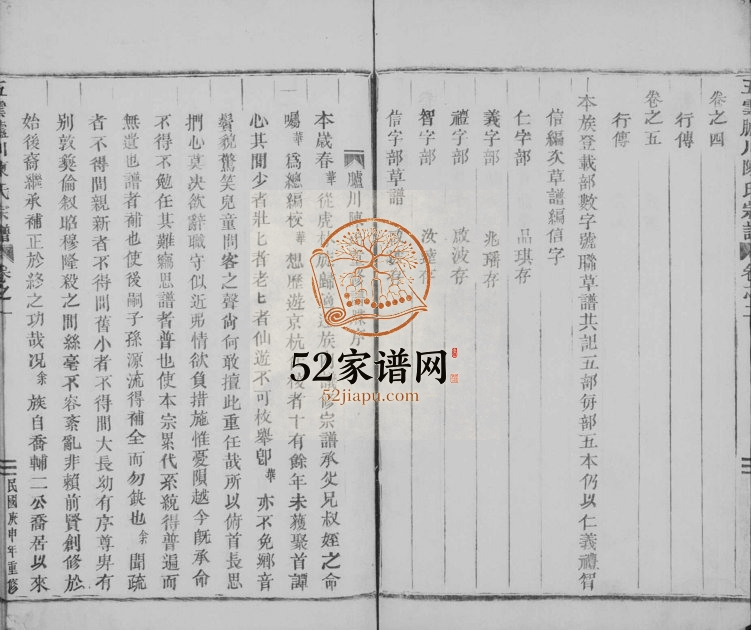 卷之四
行傳
卷之五
行傳
本族登載部數字號聯草譜共記五部每部五本仍以仁義禮智
信編矣草譜編信字
仁字部 品琪存
義字部 兆瑞存
禮字部 啟波存
智字部 汝 存
信字部草譜 存
五雲臚川陳氏宗譜
臚川陳 序
本歲春華從虎 歸 族 修宗譜承父兄叔姪之命
囑華爲總編校華想歷遊京杭 校者十有餘年未獲聚首譚
心其間少者壯壯者老老者仙遊不可枚舉卽華亦不免鄉音
鬢貌驚笑兒童問客之聲尙何敢擅此重任哉所以俯首長思
捫心莫决欲辭職守似近弗情欲負措施惟憂隕越今旣承命
不得不勉任其難竊思譜者普也使本宗累代系統得普遍而
無遺也譜者補也使後嗣子孫源流得補全而勿缺也余聞疏
者不得間親新者不得間舊小者不得間大長幼有序尊卑有
別敦彝倫叙昭穆隆殺之間絲毫不容紊亂非賴前賢創修於
始後裔繼承補正於終之功哉况余族自喬輔二公喬居以來
五雲臚川陳氏宗譜 卷之一
民國庚申年重修
52家谱网
52jiapu.com